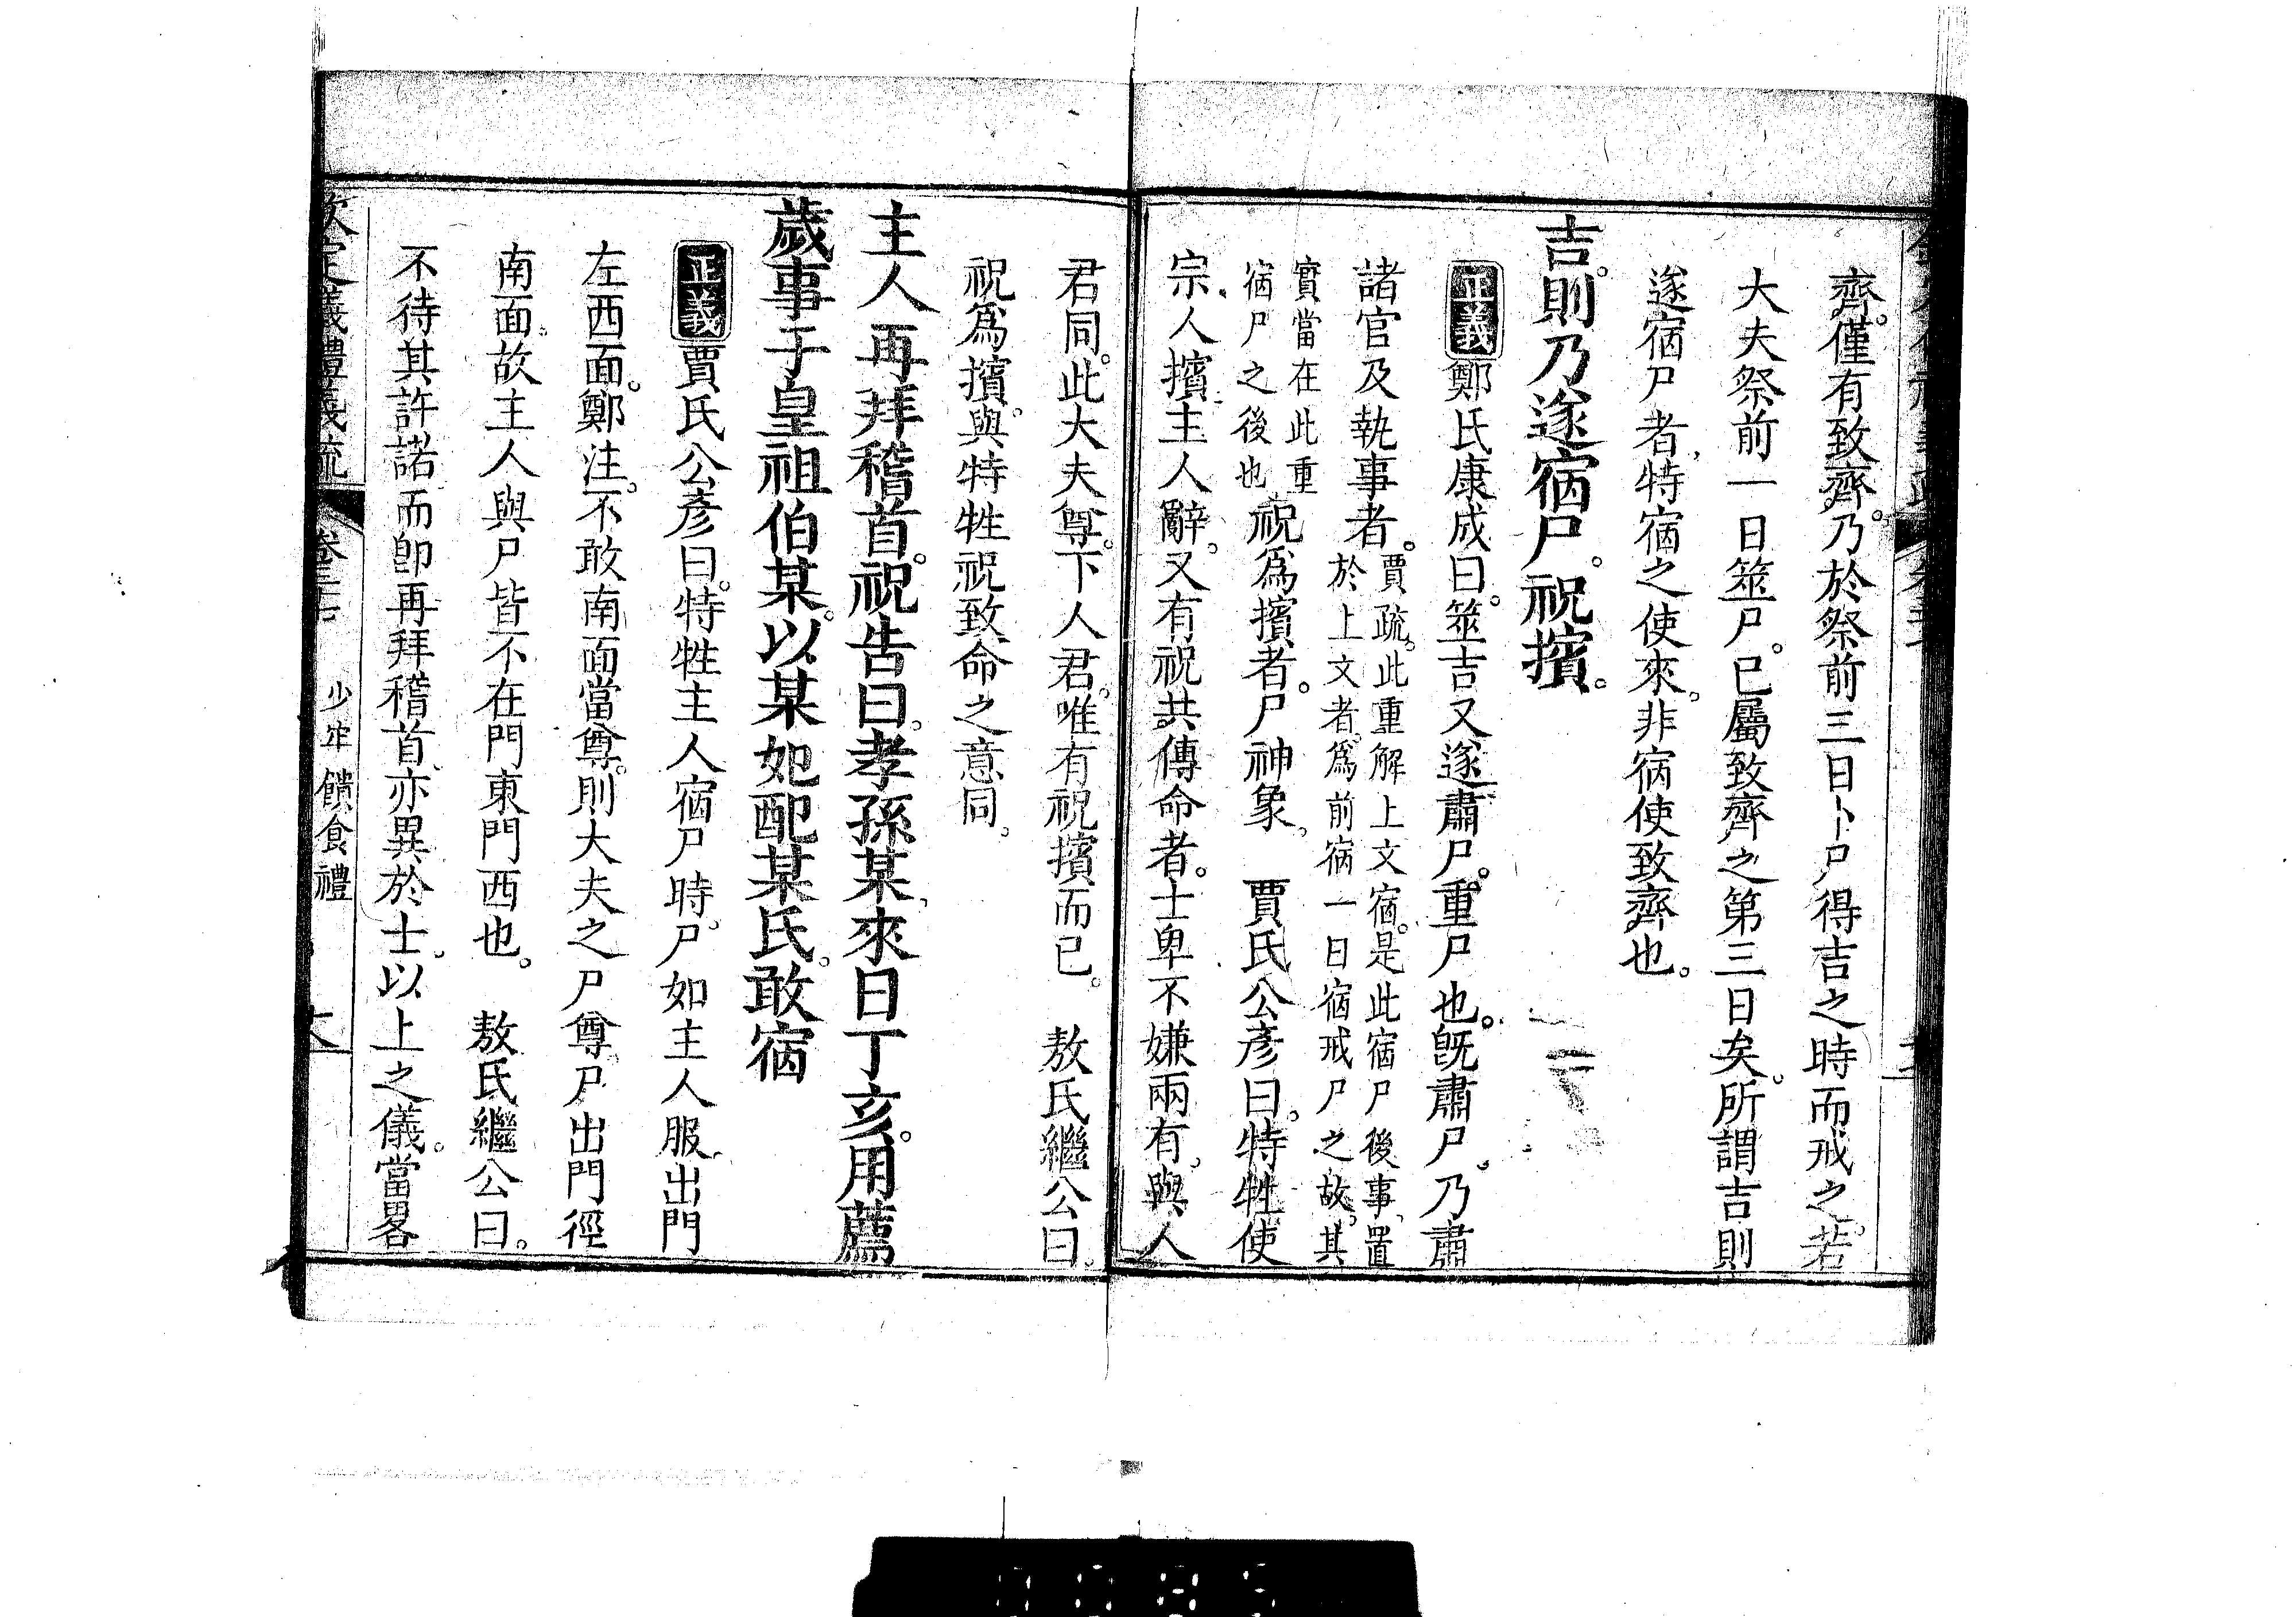 齊。僅有致齊。乃於祭前三日卜尸得吉之時而戒之。若
大夫祭前一日筮尸。已屬致齊之第三日矣。所謂吉則
遂宿尸者。特宿之使來。非宿使致齊也。
吉。則乃遂宿尸。祝擯。
正義鄭氏康成曰。筮吉又遂肅尸。重尸也。旣肅尸。乃肅
諸官及執事者。賈疏。此重解上文宿。是此宿尸後事。置
於上文者。爲前宿一日宿戒尸之故。其
實當在此重
宿尸之後也祝爲擯者。尸神象。 賈氏公彥曰。特牲使
宗人擯。主人辭。又有祝共傳命者。士卑不嫌兩有。與人
君同。此大夫尊。下人君。唯有祝擯而已。 敖氏繼公曰。
祝爲擯。與特牲祝致命之意同。
主人再拜稽首。祝告曰。孝孫某。來日丁亥。用薦
歲事于皇祖伯某。以某妃配某氏。敢宿
正義賈氏公彥曰。特牲主人宿尸時。尸如主人服。出門
左西面。鄭注。不敢南面當尊。則大夫之尸尊。尸出門徑
南面。故主人與尸皆不在門東門西也。 敖氏繼公曰。
不待其許諾而卽再拜稽首。亦異於士。以上之儀。當畧
欽定儀禮義疏 卷三十七 少牢饋食禮